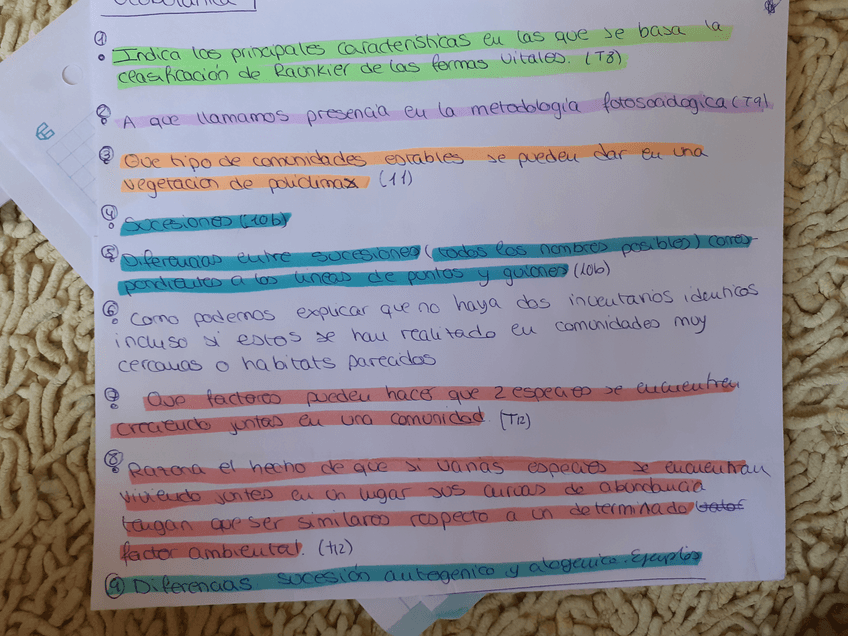 Geobotánica
①
Indica las principales características en las que se basa la
clasificación de Raunkier de las formas vitales. (T8)
② A que llamamos presencia en la metodología fotosociologica (T9)
③ Que tipo de comunidades estables se pueden dar en una
vegetación de policlimax (11)
④ Sucesiones (10b)
⑤ Diferencias entre sucesiones (todos los nombres posibles) corres-
pondientes a las lineas de puntos y guiones (10b)
⑥ Como podemos explicar que no haya dos inventarios identicos
incluso si estos se han realizado en comunidades muy
cercanas o habitats parecidos
⑦ Que factores pueden hacer que 2 especies se encuentren
creciendo juntas en una comunidad. (T12)
⑧ Razona el hecho de que si varias especies se encuentran
viviendo juntas en un lugar sus curvas de abundancia
tengan que ser similares respecto a un determinado valor
factor ambiental. (t12)
⑨ Diferencias sucesión autogenica y alogenica. Ejemplos